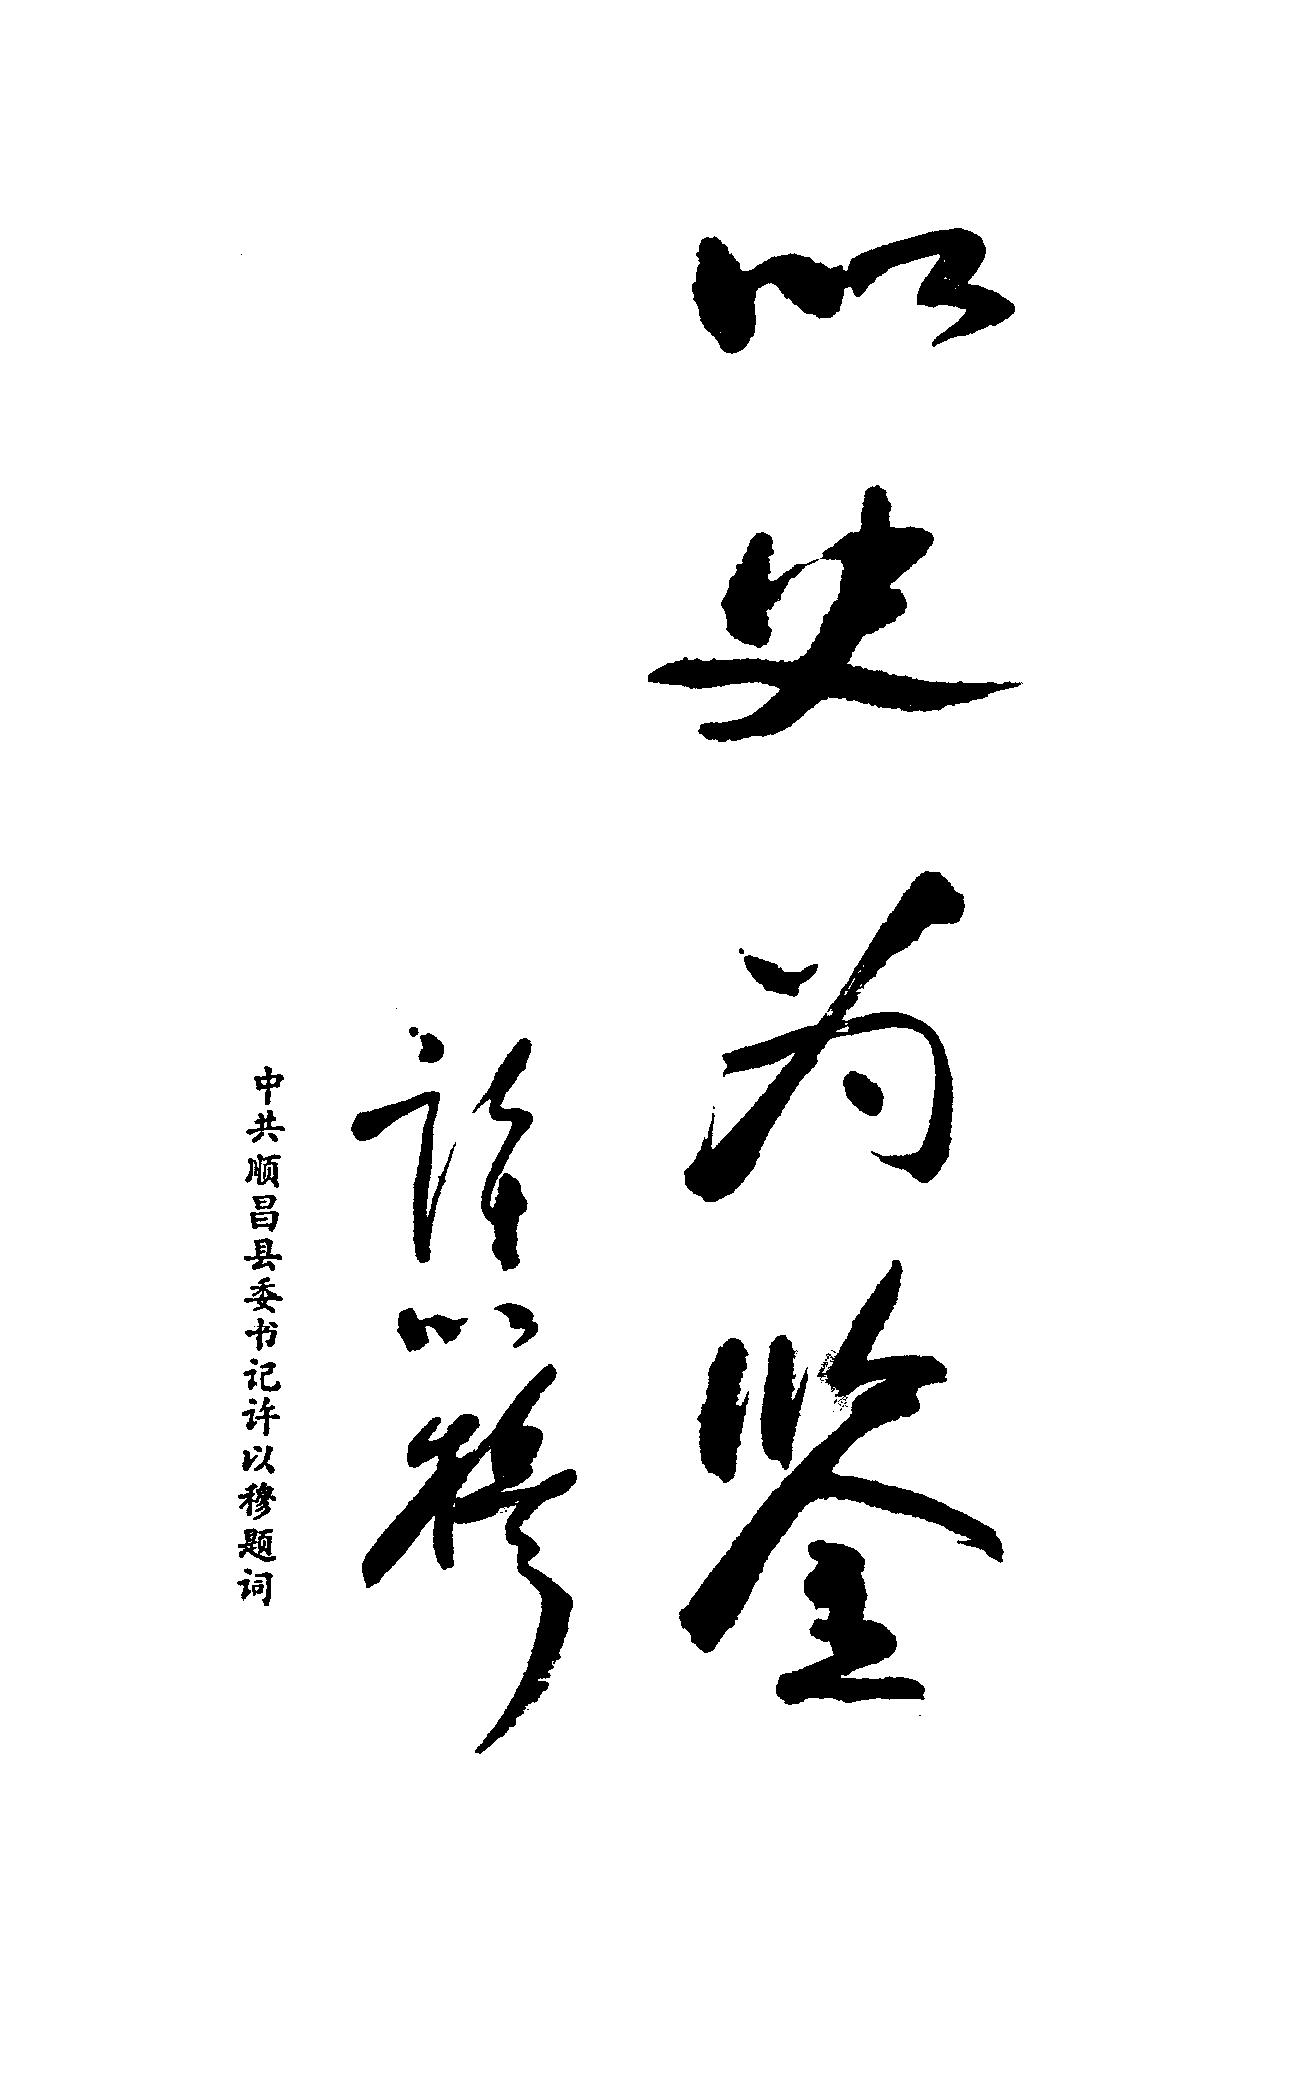 以史为鉴
许以穆
中共顺昌县委书记许以穆题词